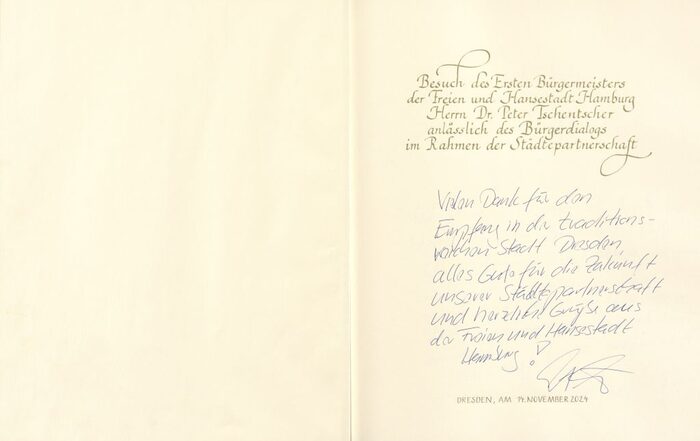 Besuch des Ersten Bürgermeisters
der Freien und Hansestadt Hamburg
Herrn Dr. Peter Tschentscher
anlässlich des Bürgerdialogs
im Rahmen der Städtepartnerschaft
Vielen Dank für den
Empfang in der traditions-
reichen Stadt Dresden
alles Gute für die Zukunft
unserer Städtepartnerschaft
und herzliche Grüße aus
der Freien und Hansestadt
Hamburg!
DRESDEN, AM 14. NOVEMBER 2024